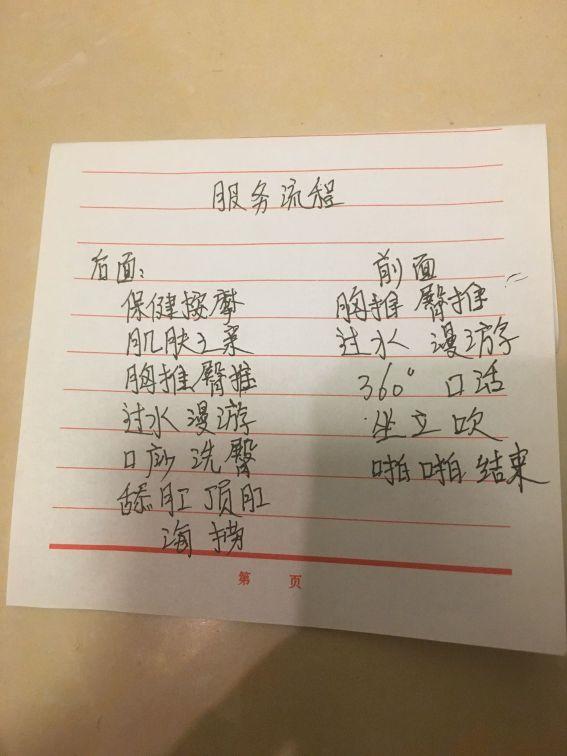 服务流程
后面：
保健按摩
肌肤之柔
胸推臀推
过水漫游
口莎洗臀
舔肛顶肛
海捞
前面
胸推臀推
过水漫游
360°口活
坐立吹
啪啪结束
第 页